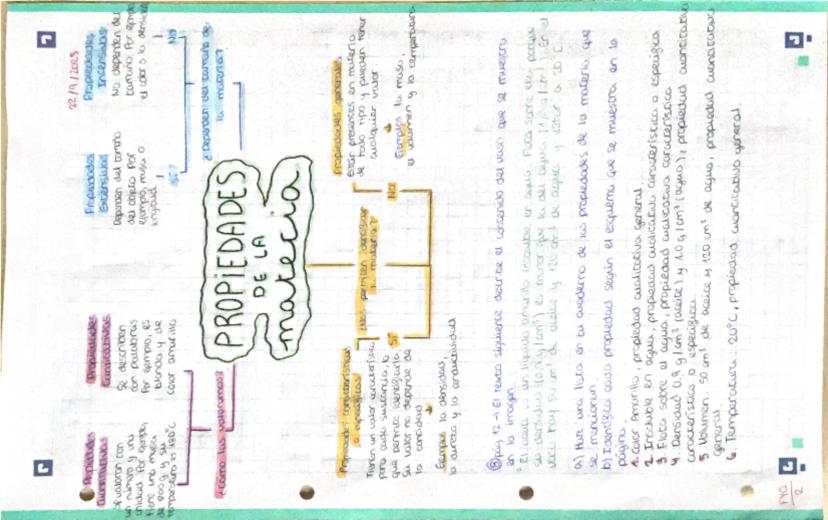 22/9/2025
Propiedades Cuantitativas
Se valoran con
un número y una
unidad. Por ejemplo,
tiene una masa
de 200 g y su
Propiedades
Cualitativas
Se describen
con palabras
Por ejemplo, es
blanda y de
color amarillo
¿Cómo las valoramos?
Propiedades
Extensivas
Dependen del tamaño
del objeto. Por
ejemplo, masa o
longitud
Propiedades
Intensivas
No dependen del
tamaño. Por ejemplo
el color o la densidad
SÍ
NO
¿Dependen del tamaño de
la materia?
PROPIEDADES
DE LA
materia
¿Nos permiten identificar
la materia?
SÍ
No
Propiedades características
o específicas
Tienen un valor característico
para cada sustancia, lo
que permite identificarla.
Su valor no depende de
la cantidad
Ejemplo: la densidad,
la dureza y la conductividad
Propiedades generales
Están presentes en materia
de todo tipo y pueden tener
cualquier valor
Ejemplos: la masa,
el volumen y la temperatura
⑧ pág 12 → El texto siguiente describe el contenido del vaso que se muestra
en la imagen.
su densidad (0,9 g/cm³) es menor que la del agua (1,0 g/cm³). En el
vaso hay 50 cm³ de aceite y 120 cm³ de agua y están a 20°C.
a) Haz una lista en tu cuaderno de las propiedades de la materia que
se mencionan.
b) Identifica cada propiedad según el esquema que se muestra en la
página.
1. Color Amarillo, propiedad cualitativa general
2. Insoluble en agua, propiedad cualitativa característica o específica.
3. Flota sobre el agua, propiedad cualitativa característica
4. Densidad 0,9 g/cm³ (aceite) y 1,0 g/cm³ (agua), propiedad cuantitativa
característica o específica
5. Volumen: 50 cm³ de aceite y 120 cm³ de agua, propiedad cuantitativa
general.
6. Temperatura: 20°C, propiedad cuantitativa general.
FYQ
2